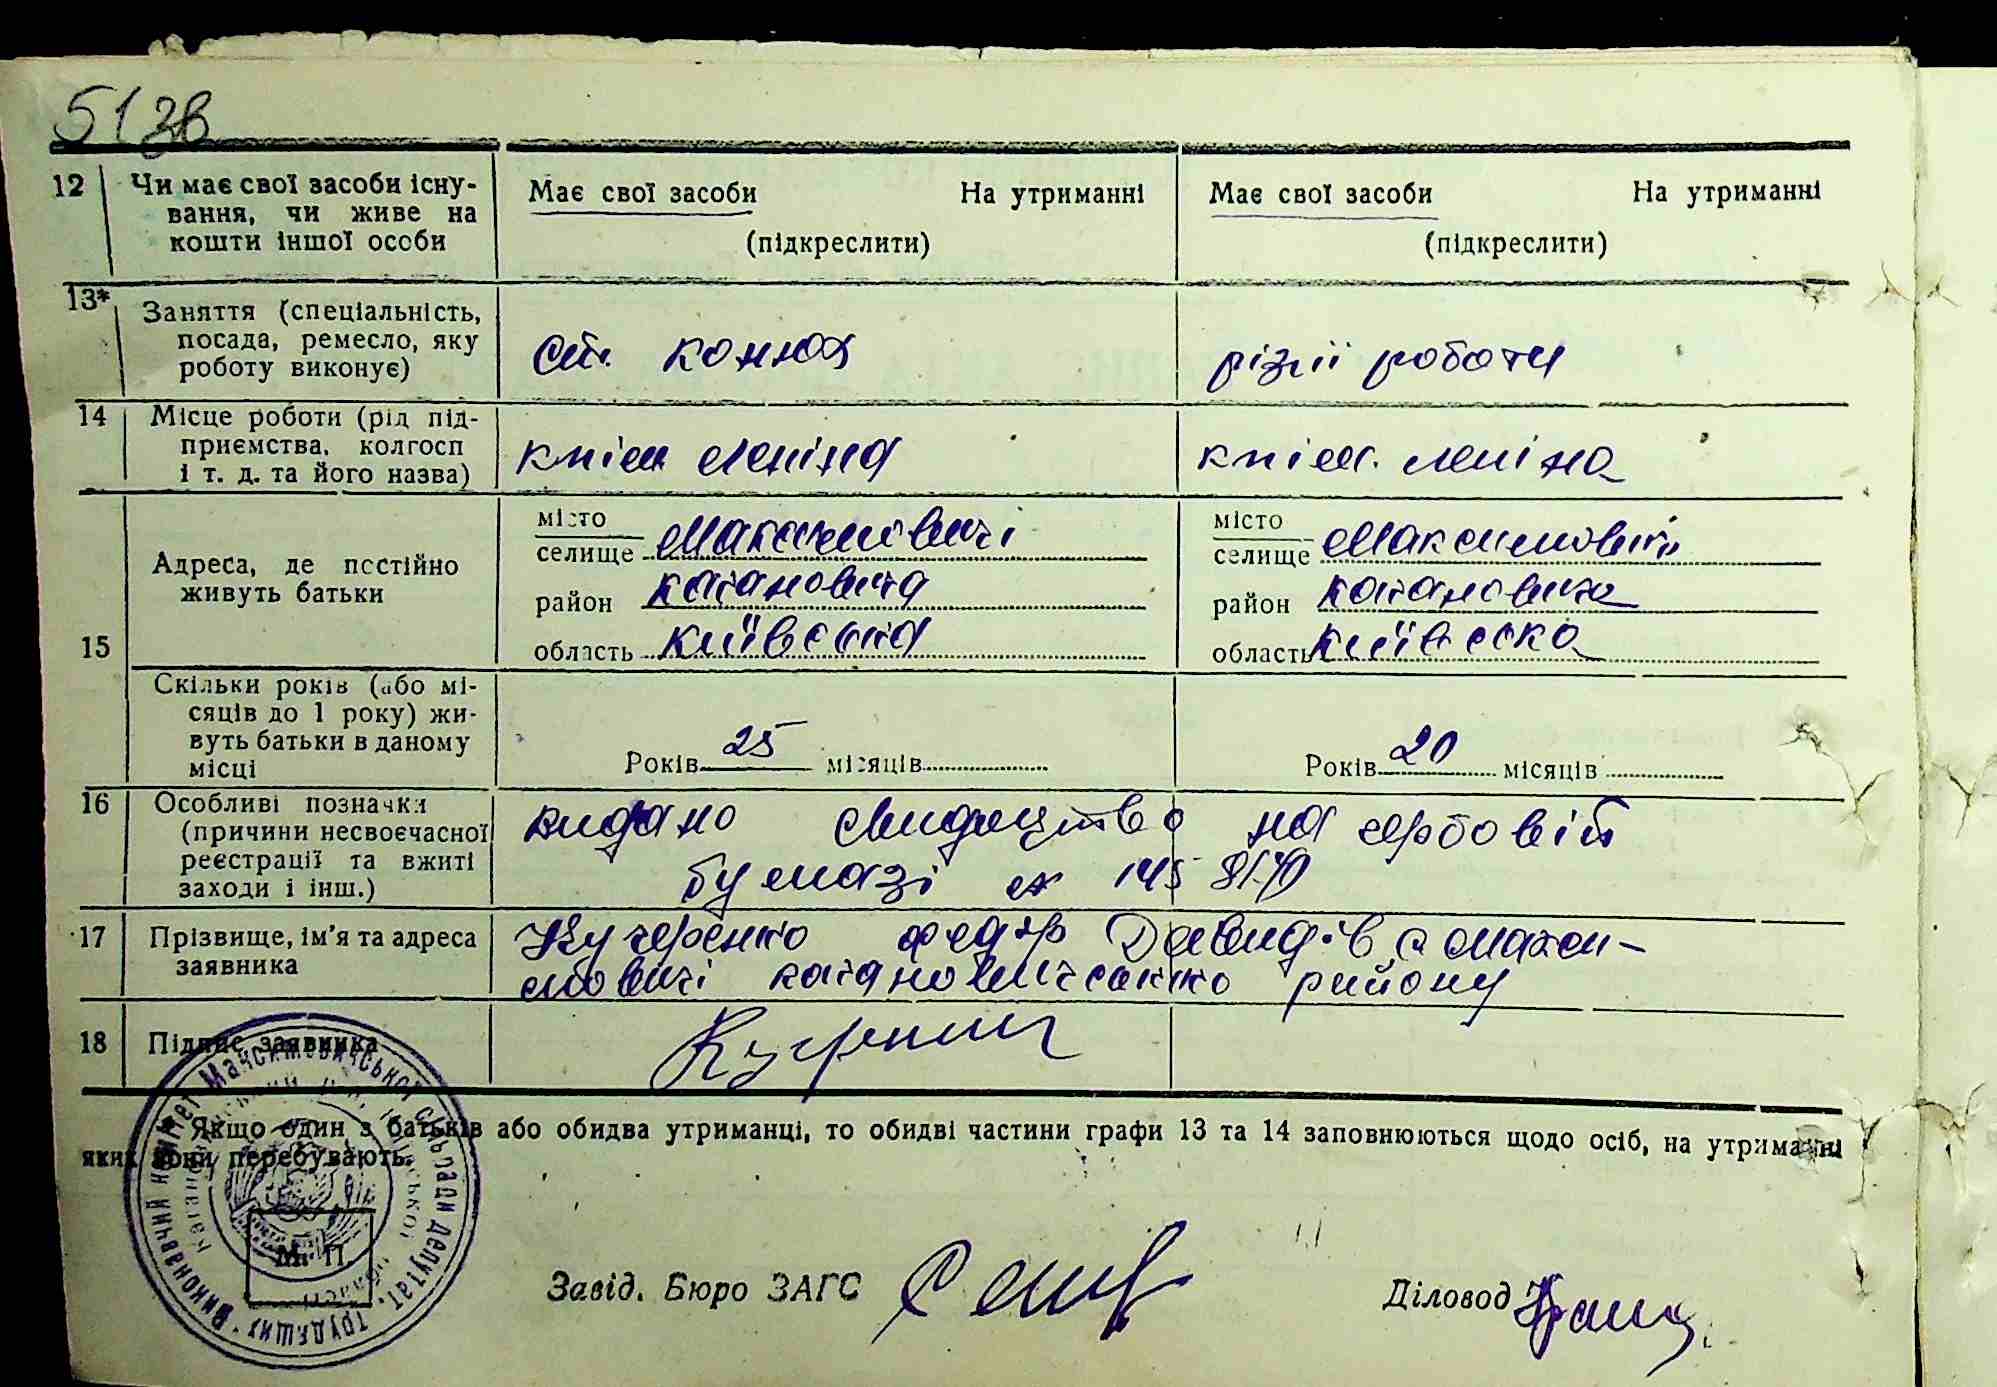 513в
12 Чи має свої засоби існу-
вання, чи живе на
кошти іншої особи
Має свої засоби На утриманні
(підкреслити)
Має свої засоби На утриманні
(підкреслити)
13* Заняття (спеціальність,
посада, ремесло, яку
роботу виконує)
ст. конюх
різні роботи
14 Місце роботи (рід під-
приємства, колгосп
і т. д. та його назва)
к-п ім Леніна
к-п ім. Леніна
15
Адреса, де постійно
живуть батьки
місто
селище Максимовичі
район Кагановича
область Київська
місто
селище Максимовичі
район Кагановича
область Київська
Скільки років (або мі-
сяців до 1 року) жи-
вуть батьки в даному
місці
Років 25 місяців
Років 20 місяців
16 Особливі позначки
(причини несвоєчасної
реєстрації та вжиті
заходи і інш.)
видано свидоцтво на гербовій
бумазі
17 Прізвище, ім'я та адреса
заявника
Кучеренко Федір Давидів с Макси-
мовичі Кагановичського району
18 Підпис заявника
Якщо один з батьків або обидва утриманці, то обидві частини графи 13 та 14 заповнюються щодо осіб, на утриманні
яких вони перебувають.
Виконавчий комітет Максимовичської сільради депутат. трудящих
М. П.
Завід. Бюро ЗАГС
Діловод